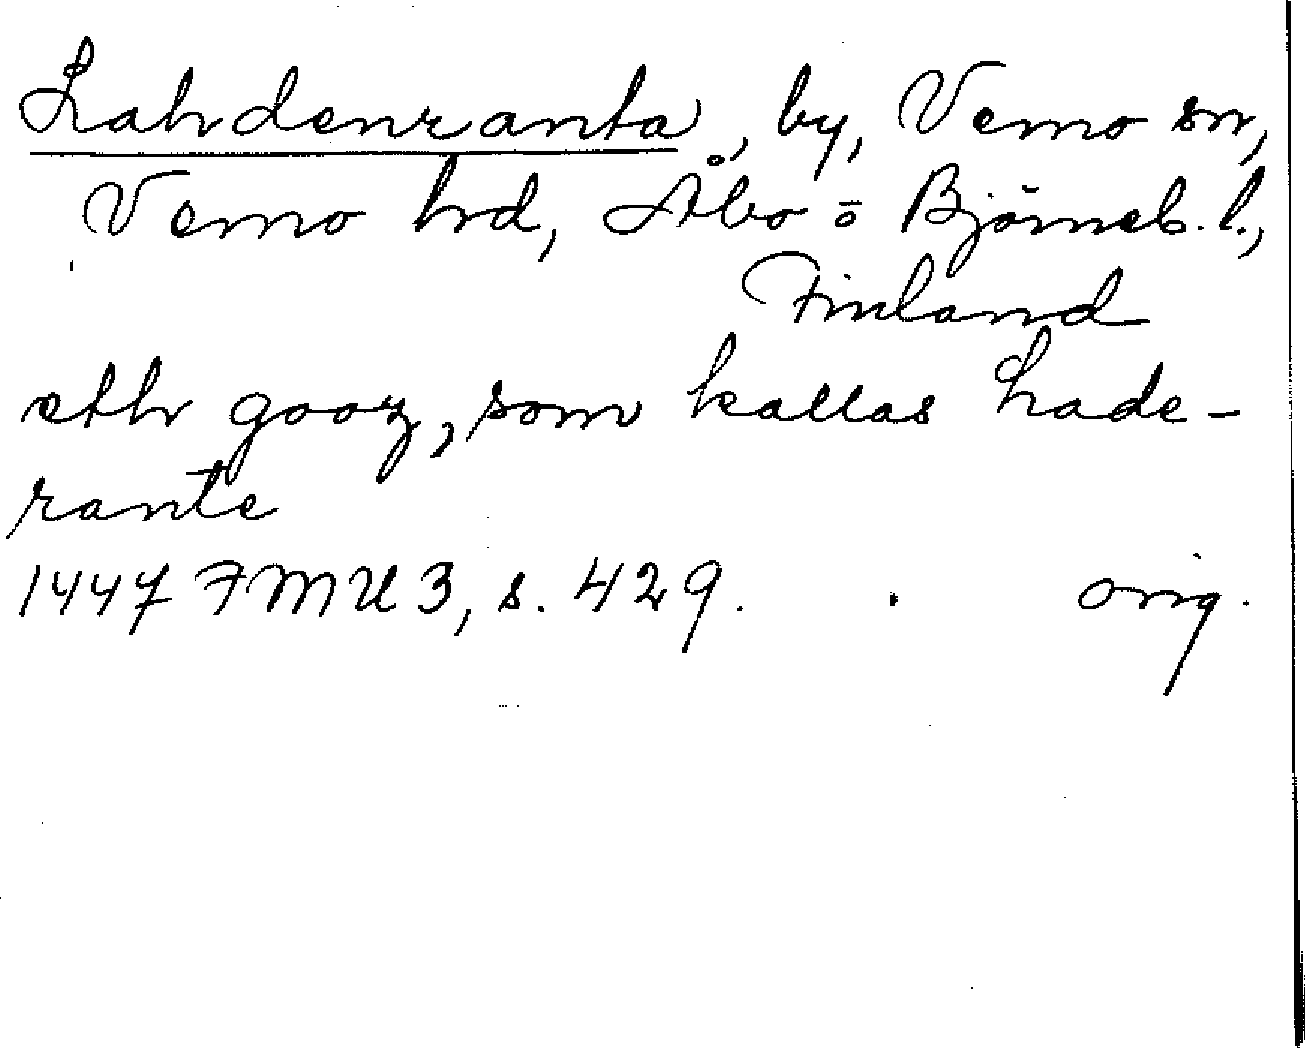 Lahdenranta, by, Vemo sn,
Vemo hd, Åbo o Björneb. l.,
Finland
eth gooz, som kallas Lade-
rante
1447 FMU 3, s. 429. orig.